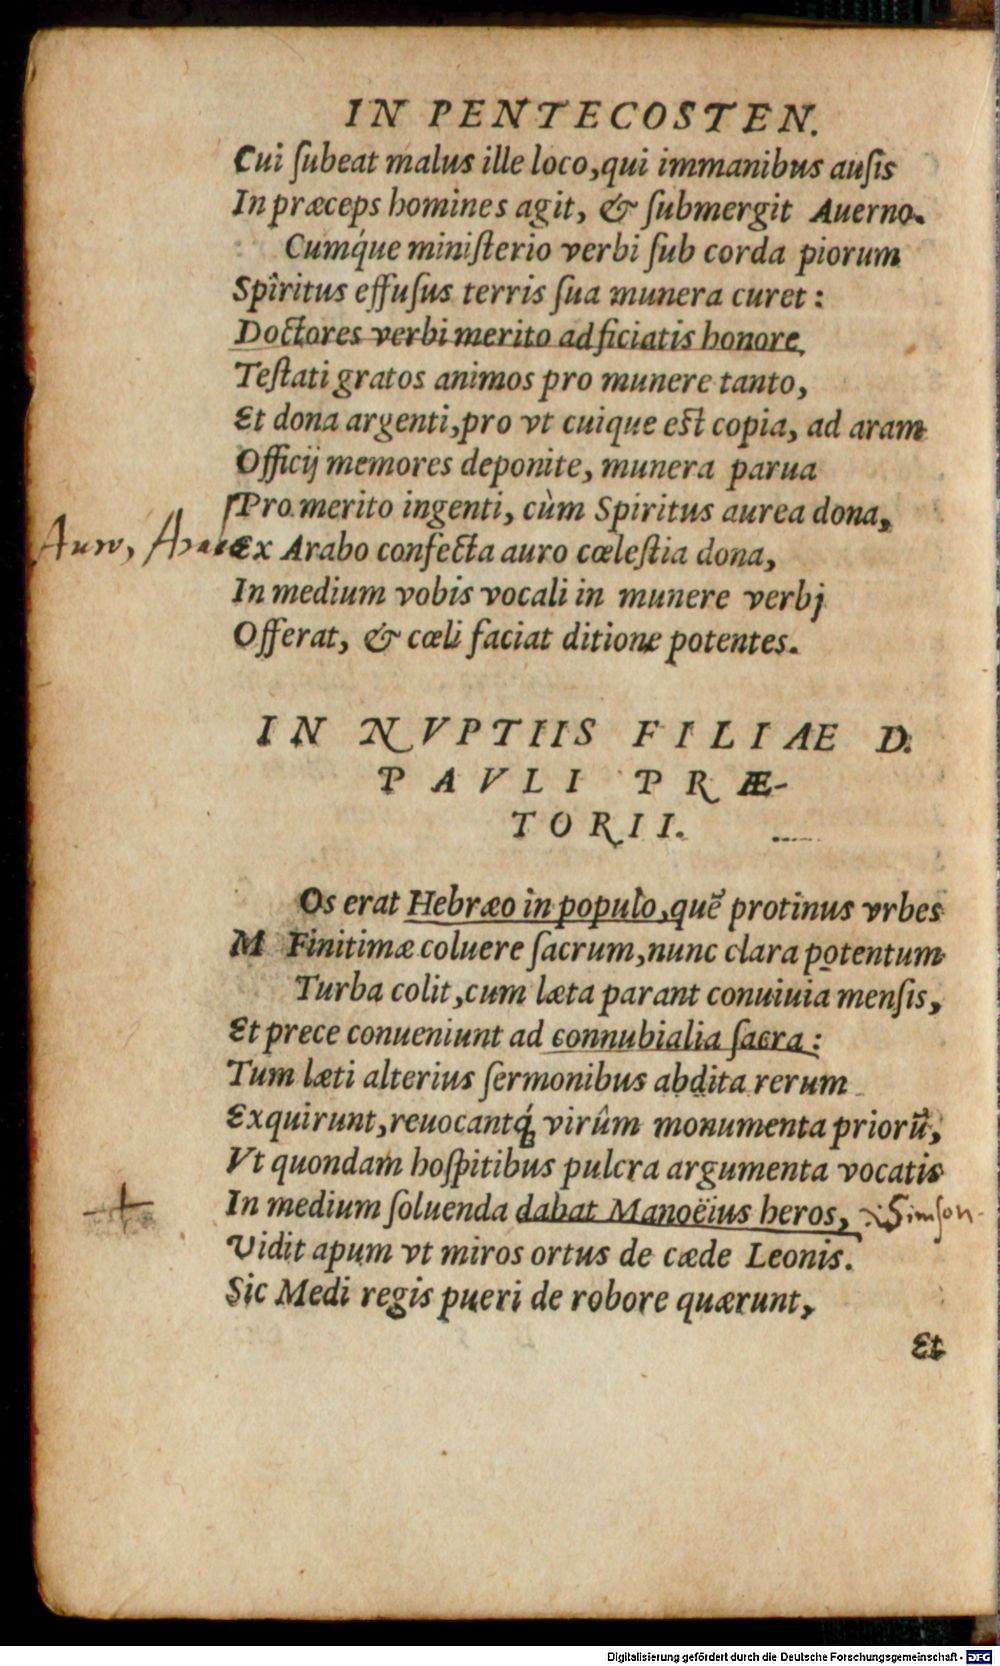 IN PENTECOSTEN.
Cui ſubeat malus ille loco, qui immanibus auſis
In præceps homines agit, & ſubmergit Auerno.
Cumq́ue miniſterio verbi ſub corda piorum
Spîritus effuſus terris ſua munera curet:
Doctores verbi merito adficiatis honore,
Teſtati gratos animos pro munere tanto,
Et dona argenti, pro vt cuique est copia, ad aram
Officij memores deponite, munera parua
Pro merito ingenti, cùm Spiritus aurea dona,
Auro, Arabo
Ex Arabo confecta auro cœleſtia dona,
In medium vobis vocali in munere verbj
Offerat, & cœli faciat ditione potentes.
IN NVPTIIS FILIAE D.
PAVLI PRÆ-
TORII.
Os erat Hebræo in populo, quẽ protinus vrbes
M Finitimæ coluere ſacrum, nunc clara potentum
Turba colit, cum læta parant conuiuia menſis,
Et prece conueniunt ad connubialia ſacra:
Tum læti alterius ſermonibus abdita rerum
Exquirunt, reuocantq́; virûm monumenta priorũ,
Vt quondam hoſpitibus pulcra argumenta vocatis
In medium ſoluenda dabat Manoëius heros, Simſon
Vidit apum vt miros ortus de cæde Leonis.
Sic Medi regis pueri de robore quærunt,
Et
Digitalisierung gefördert durch die Deutsche Forschungsgemeinschaft - DFG